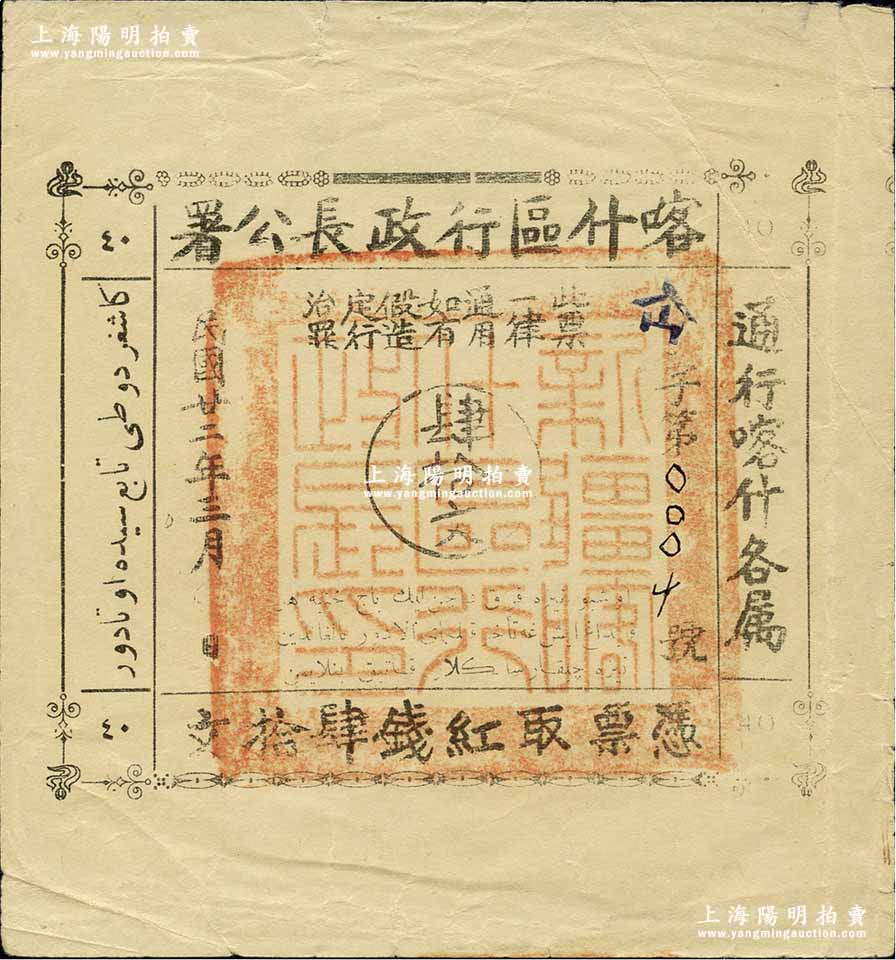 上海陽明拍賣
www.yangmingauction.com
上海陽明拍賣
www.yangmingauction.com
喀什區行政長公署
٤٠
40
此票
一律
通用
如有
假造
定行
治罪
通行喀什各属
字第0004號
肆拾文
上海陽明拍賣
www.yangmingauction.com
民國廿二年三月 日
كاشغر دوطی تابع سیده اوتادور
憑票取紅錢肆拾文
٤٠
40
上海陽明拍賣
www.yangmingauction.com